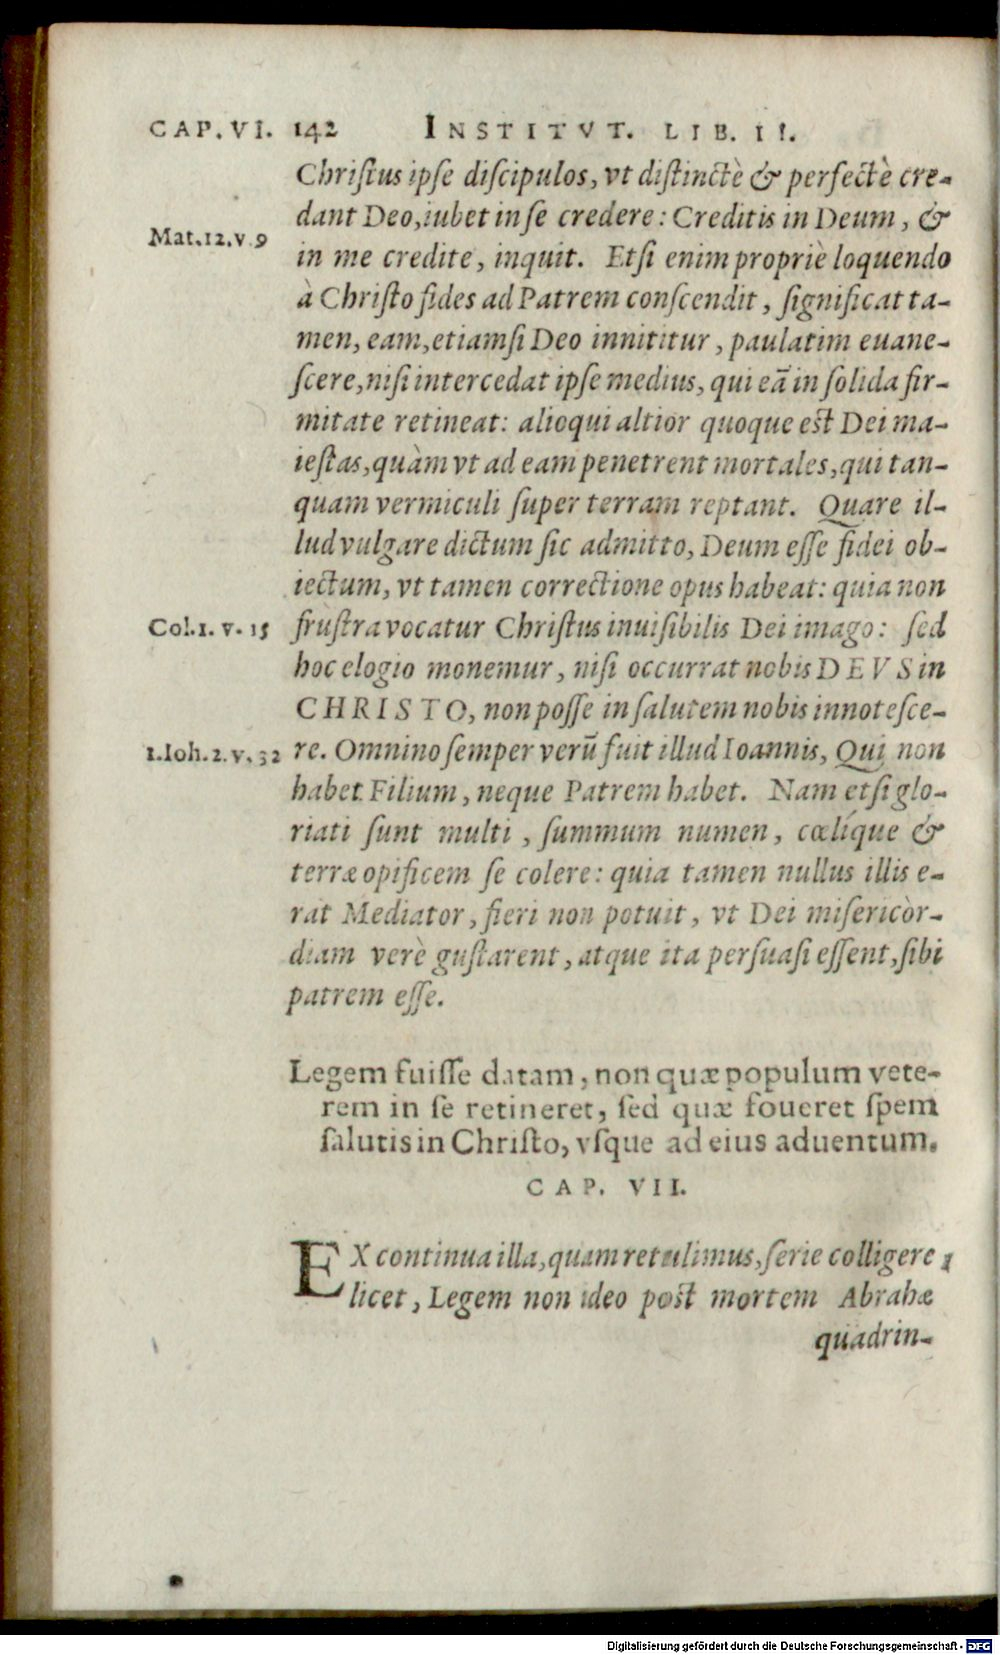 CAP. VI. 142 INSTITVT. LIB. II.
Chriſtus ipſe diſcipulos, vt diſtinctè & perfectè cre-
dant Deo, iubet in ſe credere: Creditis in Deum, &
Mat. 12. v 9
in me credite, inquit. Etſi enim propriè loquendo
à Chriſto fides ad Patrem conſcendit, ſignificat ta-
men, eam, etiamſi Deo innititur, paulatim euane-
ſcere, niſi intercedat ipſe medius, qui eā in ſolida fir-
mitate retineat: alioqui altior quoque eſt Dei ma-
ieſtas, quàm vt ad eam penetrent mortales, qui tan-
quam vermiculi ſuper terram reptant. Quare il-
lud vulgare dictum ſic admitto, Deum eſſe fidei ob-
iectum, vt tamen correctione opus habeat: quia non
Col. 1. v. 15
fruſtra vocatur Chriſtus inuiſibilis Dei imago: ſed
hoc elogio monemur, niſi occurrat nobis DEVS in
CHRISTO, non poſſe in ſalutem nobis innoteſce-
1. Ioh. 2. v. 32
re. Omnino ſemper verū fuit illud Ioannis, Qui non
habet Filium, neque Patrem habet. Nam etſi glo-
riati ſunt multi, ſummum numen, cœlíque &
terræ opificem ſe colere: quia tamen nullus illis e-
rat Mediator, fieri non potuit, vt Dei miſericòr-
diam verè guſtarent, atque ita perſuaſi eſſent, ſibi
patrem eſſe.
Legem fuiſſe datam, non quæ populum vete-
rem in ſe retineret, ſed quæ foueret ſpem
ſalutis in Chriſto, vſque ad eius aduentum.
CAP. VII.
EX continua illa, quam retulimus, ſerie colligere 1
licet, Legem non ideo poſt mortem Abrahæ
quadrin-
Digitalisierung gefördert durch die Deutsche Forschungsgemeinschaft - DFG